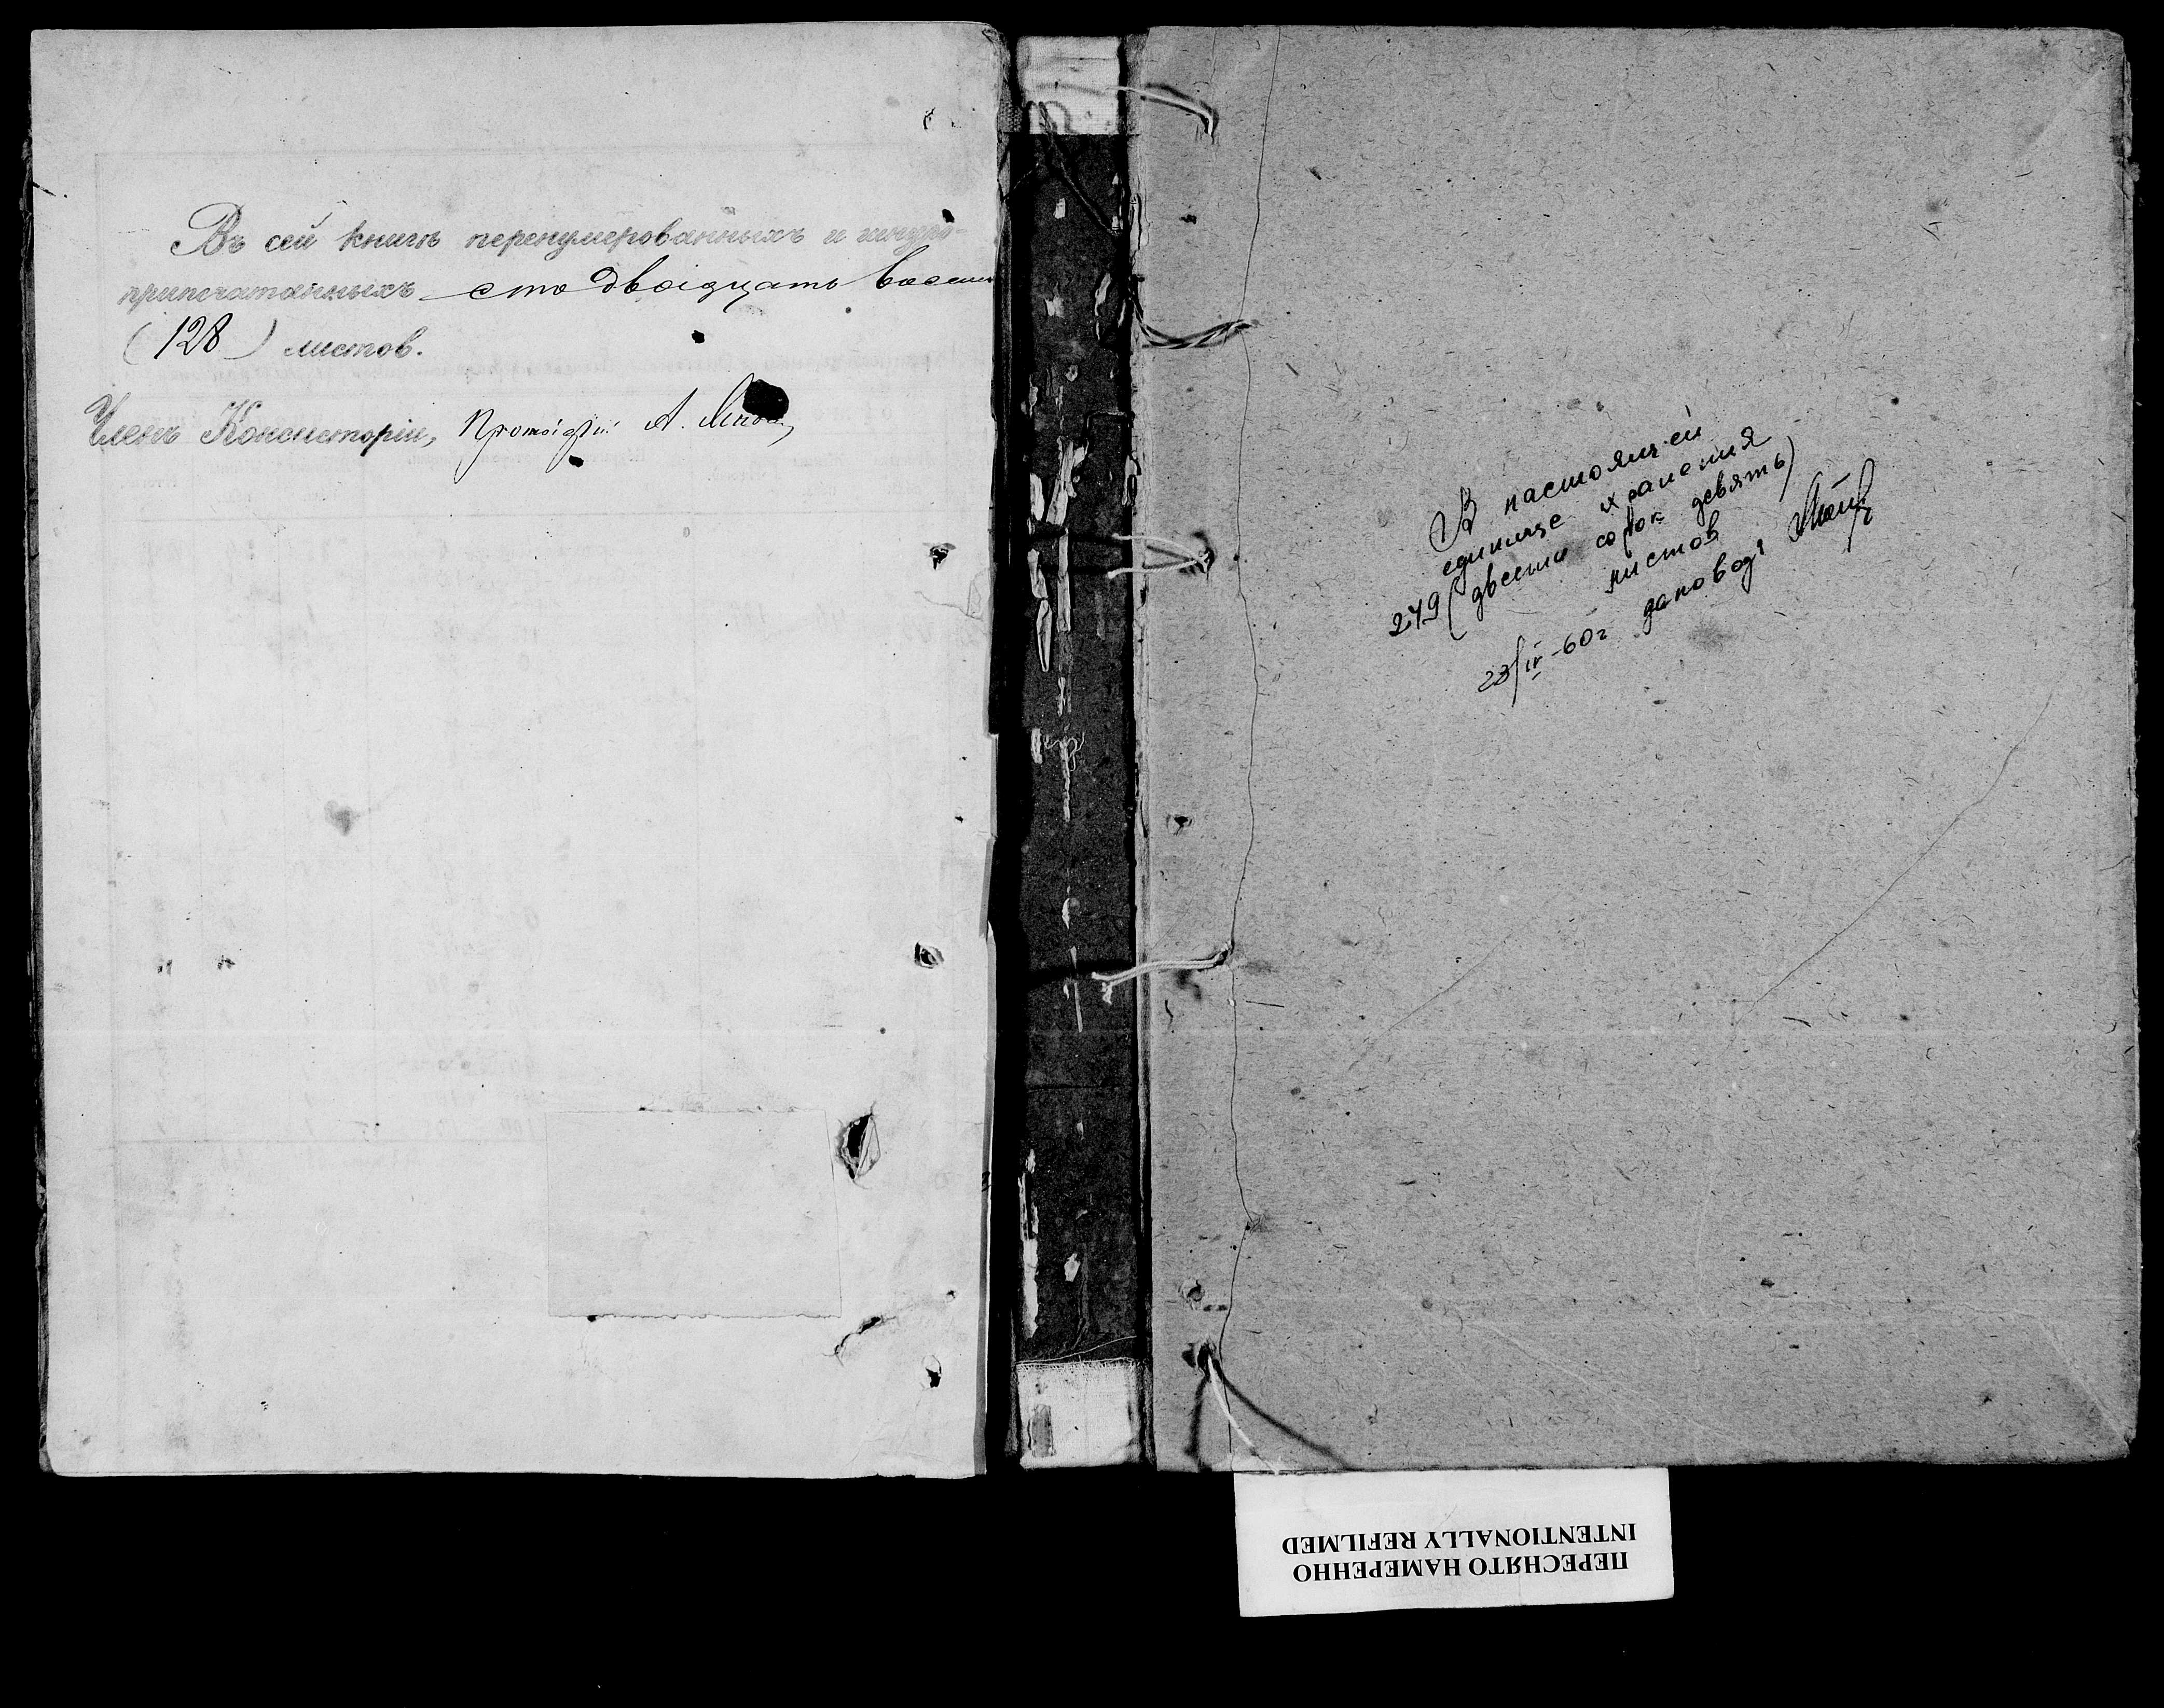 Въ сей книгѣ перенумерованныхъ и шнуро-
припечатанныхъ сто двадцать восемь
(128) листов.
Членъ Консисторіи, Протоіерей А.
В настоящей
единице хранения
249 (двести сорок девять)
листов
23/IV-60г
ПЕРЕСНЯТО НАМЕРЕННО
INTENTIONALLY REFILMED